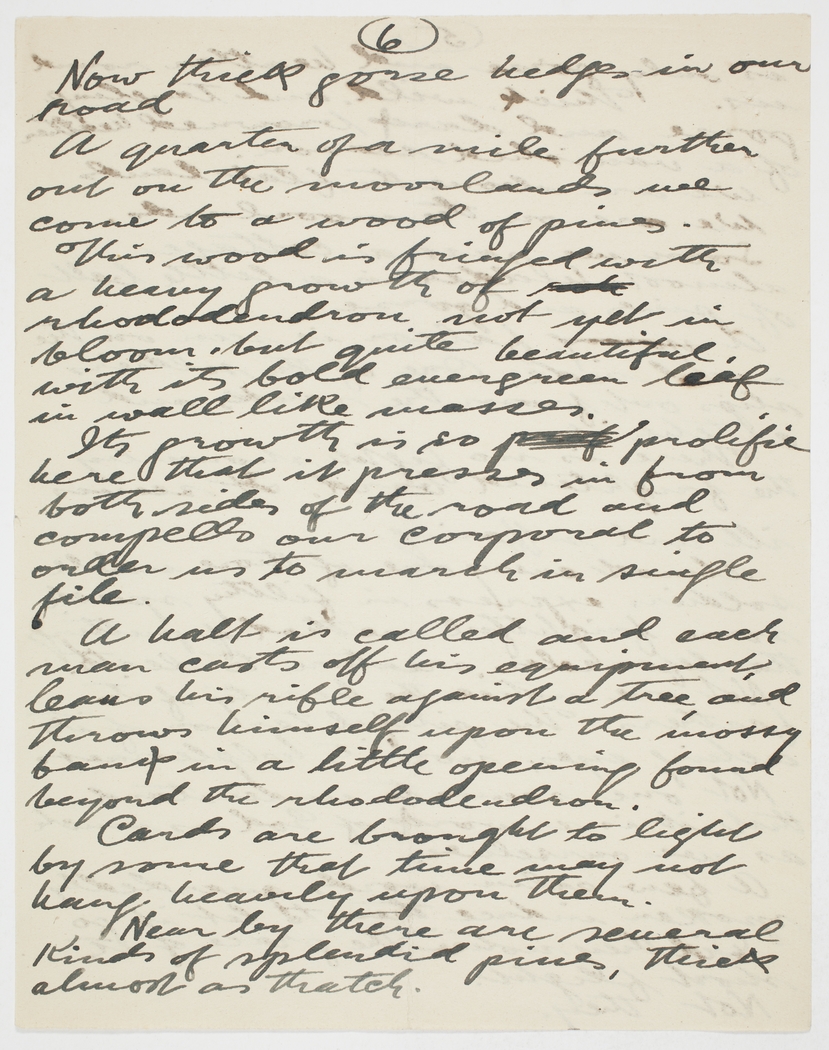 6
Now thick gorse hedges in our
road
A quarter of a mile further
out on the moorlands we
come to a wood of pines.
This wood is fringed with
a heavy growth of
rhododendron not yet in
bloom, but quite beautiful
with its bold evergreen leaf
in wall like masses.
Its growth is so prolific
here that it presses in from
both sides of the road and
compells our corporal to
order us to march in single
file.
A halt is called and each
man casts off his equipment,
leans his rifle against a tree, and
throws himself upon the mossy
bank in a little opening found
beyond the rhododendron.
Cards are brought to light
by some that time may not
hang heavily upon them.
Near by there are several
kinds of splendid pines, thick
almost as thatch.